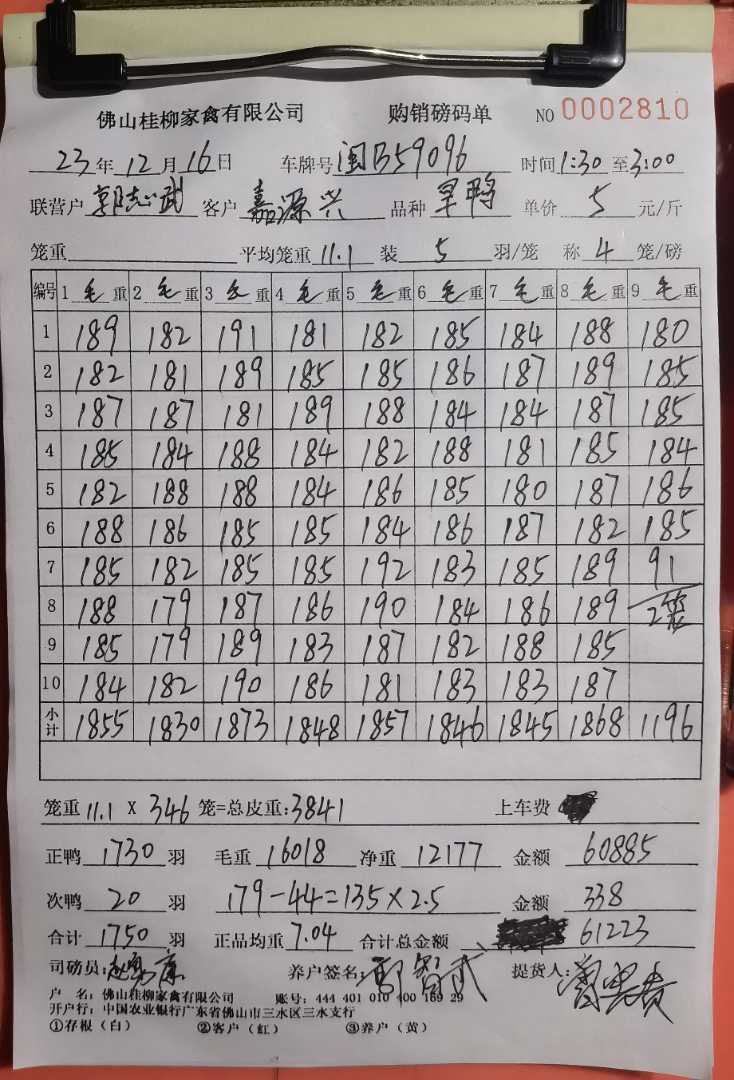 佛山桂柳家禽有限公司 购销磅码单 NO 0002810
23年12月16日 车牌号闽B59096 时间1:30至3:00
联营户郭志武 客户嘉源兴 品种旱鸭 单价5元/斤
笼重 平均笼重11.1 装5羽/笼 称4笼/磅
编号 1毛重 2毛重 3毛重 4毛重 5毛重 6毛重 7毛重 8毛重 9毛重
1 189 182 191 181 182 185 184 188 180
2 182 181 189 185 185 186 187 189 185
3 187 187 181 189 188 184 184 187 185
4 185 184 188 184 182 188 181 185 184
5 182 188 188 184 186 185 180 187 186
6 188 186 185 185 184 186 187 182 185
7 185 182 185 185 192 183 185 189 91
8 188 179 187 186 190 184 186 189 2笼
9 185 179 189 183 187 182 188 185
10 184 182 190 186 181 183 183 187
小计 1855 1830 1873 1848 1857 1846 1845 1868 1196
笼重11.1×346笼=总皮重:3841 上车费
正鸭1730羽 毛重16018 净重12177 金额60885
次鸭20羽 179-44=135×2.5 金额338
合计1750羽 正品均重7.04 合计总金额 61223
司磅员: 养户签名: 提货人:
户 名:佛山桂柳家禽有限公司 账号:444 401 010 400 169 29
开户行:中国农业银行广东省佛山市三水区三水支行
①存根(白) ②客户(红) ③养户(黄)